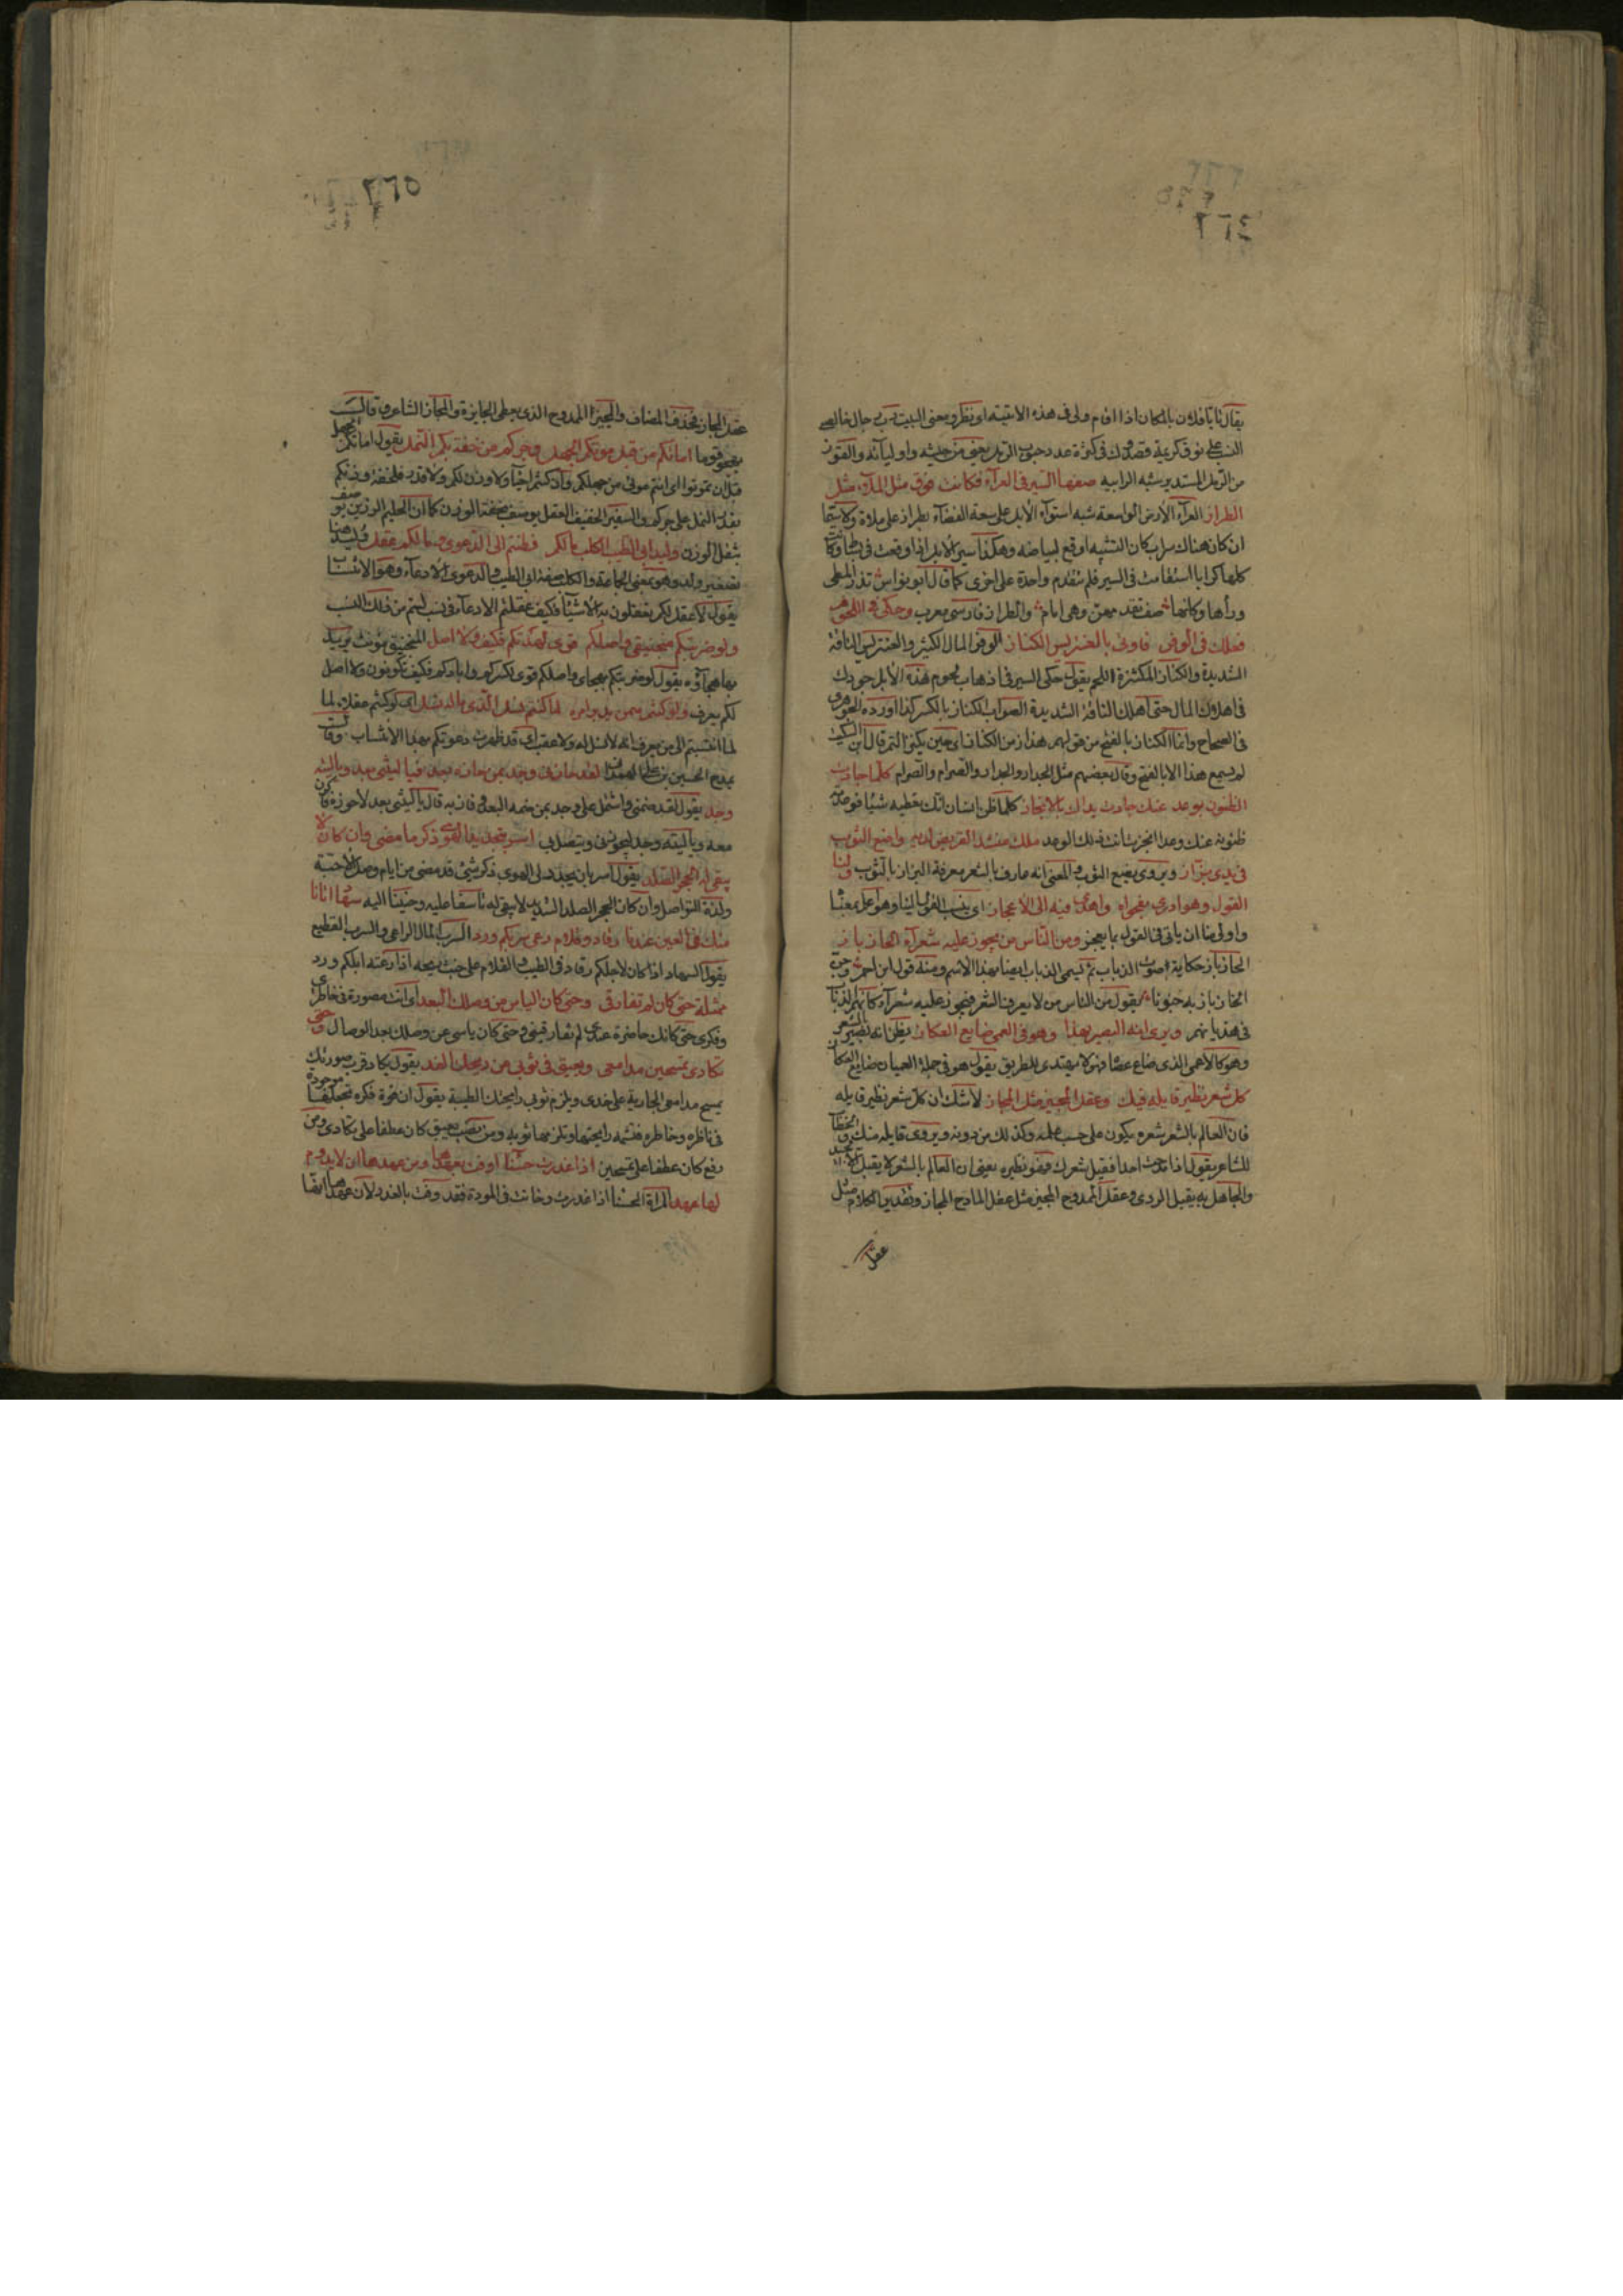 ٢٦٤
يقال تايا فلان بالمكان اذا اقام ولى فى هذه الابنية اى نظر ومعنى البيت
من الرمل المستدير شبه الرابيه صفها السير فى العرآء فكانت فوق مثل الملآء مثل
الطراز العرآء الأرض الواسعة شبه استوآء الأبل على سعة الفضآء بطراز على ملاة
ان كان هناك سراب كان التشبيه اوقع لبياضه وهكذا سير الابل اذا وقعت فى
كلها كرايا استقامت فى السير فلم تتقدم واحدة على اخرى كما قال ابو نواس تذر المطى
ورآها وكانها صف تقدمهن وهى امام والطراز فارسى معرب وحكى فى اللحوم
فعلك فى الوفر فاودى بالعنتريس الكناز الوفر المال الكثير والعنتريس الناقة
الشديدة والكناز المكتنزة اللحم يقول حكى السير فى اذهاب لحوم هذه الأبل جودك
فى اهلاك المال حتى اهلك الناقة الشديدة الصواب الكناز بالكسر كذا اورده الجوهرى
فى الصحاح وانما الكناز بالفتح من قولهم هذا زمن الكناز اى حين يكنز التمر قال ابن السكيت
لم يسمع هذا الا بالفتح وقال بعضهم مثل الجداد والجداد والصرام والصرام كلما جادت
الظنون بوعد عنك جادت يداك بالانجاز كلما ظن انسان انك تعطيه شيئا فوعدته
ظنونه عنك وعدا انجزت انت ذلك الوعد ملك منشد القريض لديه واضع الثوب
فى يدى بزاز ويروى يضع الثوب والمعنى انه عارف بالشعر معرفة البزاز بالثوب ولنا
القول وهو ادرى بفحواه واهدى فيه الى الاعجاز اى ينسب القول الينا وهو اعلم بمعناه
واولى منا ان ياتى فى القول بما يعجز ومن الناس من يجوز عليه شعرآء كانها الخازباز
الخازباز حكاية صوت الذباب ثم يسمى الذباب ايضا بهذا الاسم ومنه قول ابن احمر وجن
الخازباز به جنونا يقول من الناس من لا يعرف الشعر فيجوز عليه شعرآء كانهم الذباب
فى هذيانهم ويرى انه البصير بهذا وهو فى العمى ضايع العكاز يظن انه بصير بالشعر
وهو كالاعمى الذى ضاع عصاه فهو لا يهتدى للطريق يقول هو فى جملة العميان ضايع العكاز
كل شعر نظير قايله فيك وعقل المجيز مثل المجاز لا شك ان كل شعر نظير قايله
فان العالم بالشعر شعره يكون على حسب علمه وكذلك من دونه ويروى قايله منك
للشاعر يقول اذا مدحت احدا فقيل شعرك فهو نظيره يعنى ان العالم بالشعر لا يقبل الا الجيد
والجاهل به يقبل الردى وعقل الممدوح المجيز مثل عقل المادح المجاز وتقدير الكلام مثل
عقل
٢٦٥
عقل المجاز فحذف المضاف والمجيز الممدوح الذى يعطى الجايزة والمجاز الشاعر وقال
يهجو قوما اماتكم من قبل موتكم الجهل وجركم من خفة بكم النمل يقول اماتكم الجهل
قبل ان تموتوا اى انتم موتى من جهلكم وان كنتم احيآء ولا وزن لكم ولا قدر فلخفة وزنكم
يقدر النمل على جركم والسفيه الخفيف العقل يوصف بخفة الوزن كما ان الحليم الرزين يوصف
بثقل الوزن وليد ابى الطيب الكلب ما لكم فطنتم الى الدعوى وما لكم عقل وليد هنا
تصغير ولد وهو بمعنى الجماعة والكلب صفة ابى الطيب والدعوى الادعآء وهو الانتساب
يقول لا عقل لكم تعقلون به الاشيآء فكيف عقلتم الادعآء فى نسب لستم من ذلك النسب
ولو ضربتكم منجنيقى واصلكم قوى لهدتكم فكيف ولا اصل المنجنيق مؤنث يريد
بها هجآؤه يقول لو ضربتكم بهجاى واصلكم قوى لكسركم وابادكم فكيف تكونون ولا اصل
لكم يعرف ولو كنتم ممن يدبر امره لما كنتم نسل الذى ما له نسل اى لو كنتم عقلآء لما
لما انتسبتم الى من يعرف انه لا نسل له ولا عقب اى قد ظهرت دعوتكم بهذا الانتساب وقال
يمدح الحسين بن على الهمذانى لقد حازنى وجد بمن حازه بعد فيا ليتنى بعد ويا ليته
وجد يقول لقد ضمنى واشتمل على وجد بمن ضمه البعد وفاز به قال يا ليتنى بعد لاحوزه فاكون
معه ويا ليته وجد ليحوزنى ويتصل بى اسر بتجديد الهوى ذكر ما مضى وان كان لا
يبقى له الحجر الصلد يقول اسر بان يجدد لى الهوى ذكر شئ قد مضى من ايام وصل الاحبة
ولذة التواصل وان كان الحجر الصلد الشديد لا يبقى له تاسفا عليه وحنينا اليه سهاد اتانا
منك فى العين عندنا رقاد وقلام رعى سربكم ورد السرب المال الراعى والسرب القطيع
يقول السهاد اذا كان لاجلكم رقاد فى الطيب والقلام على خبث ريحه اذا رعته ابلكم ورد
ممثلة حتى كان لم تفارقى وحتى كان الياس من وصلك الوعد اى انت مصورة فى خاطرى
وفكرى حتى كانك حاضرة عندى لم تفارقينى وحتى كان ياسى من وصلك بعد الوصال وحتى
تكادى تمسحين مدامعى ويعبق فى ثوبى من ريحك الند يقول يكاد قرب صورتك
يمسح مدامعى الجارية على خدى ويلزم ثوبى رايحتك الطيبة يقول ان قوة فكره تجعلها موجودة
فى ناظره وخاطره فتشمه رايحتها وتلزمها ثوبه ومن نصب يعبق كان عطفا على تكادى ومن
رفع كان عطفا على تمسحين اذا غدرت حسنآء اوفت بعهدها ومن عهدها ان لا يدوم
لها عهد المراة الحسنآء اذا غدرت وخانت فى المودة فقد وفت بالعهد لان عهدها ايضا